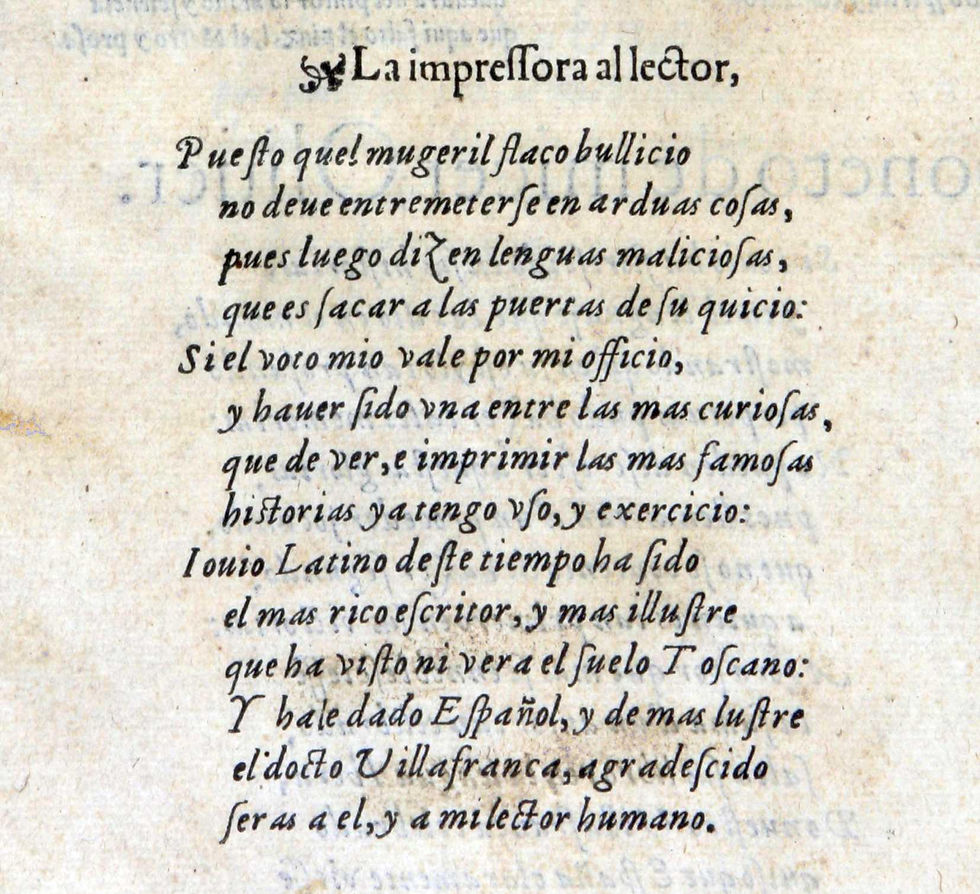 La impreſſora al lector,
Pueſto quel mugeril flaco bullicio
no deue entremeterſe en arduas coſas,
pues luego dizen lenguas malicioſas,
que es ſacar a las puertas de ſu quicio:
Si el voto mio vale por mi officio,
y hauer ſido vna entre las mas curioſas,
que de ver, e imprimir las mas famoſas
hiſtorias ya tengo vſo, y exercicio:
Iouio Latino deſte tiempo ha ſido
el mas rico eſcritor, y mas illuſtre
que ha viſto ni vera el ſuelo Toſcano:
Y hale dado Eſpañol, y de mas luſtre
el docto Villafranca, agradeſcido
ſeras a el, y a mi lector humano.